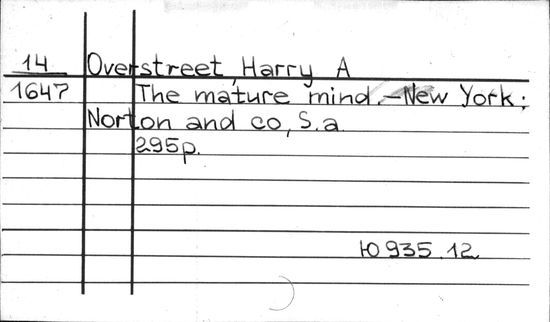 14 Overstreet, Harry A
1647 The mature mind.-New York:
Norton and co, S.a
295p.
Ю 935.12.